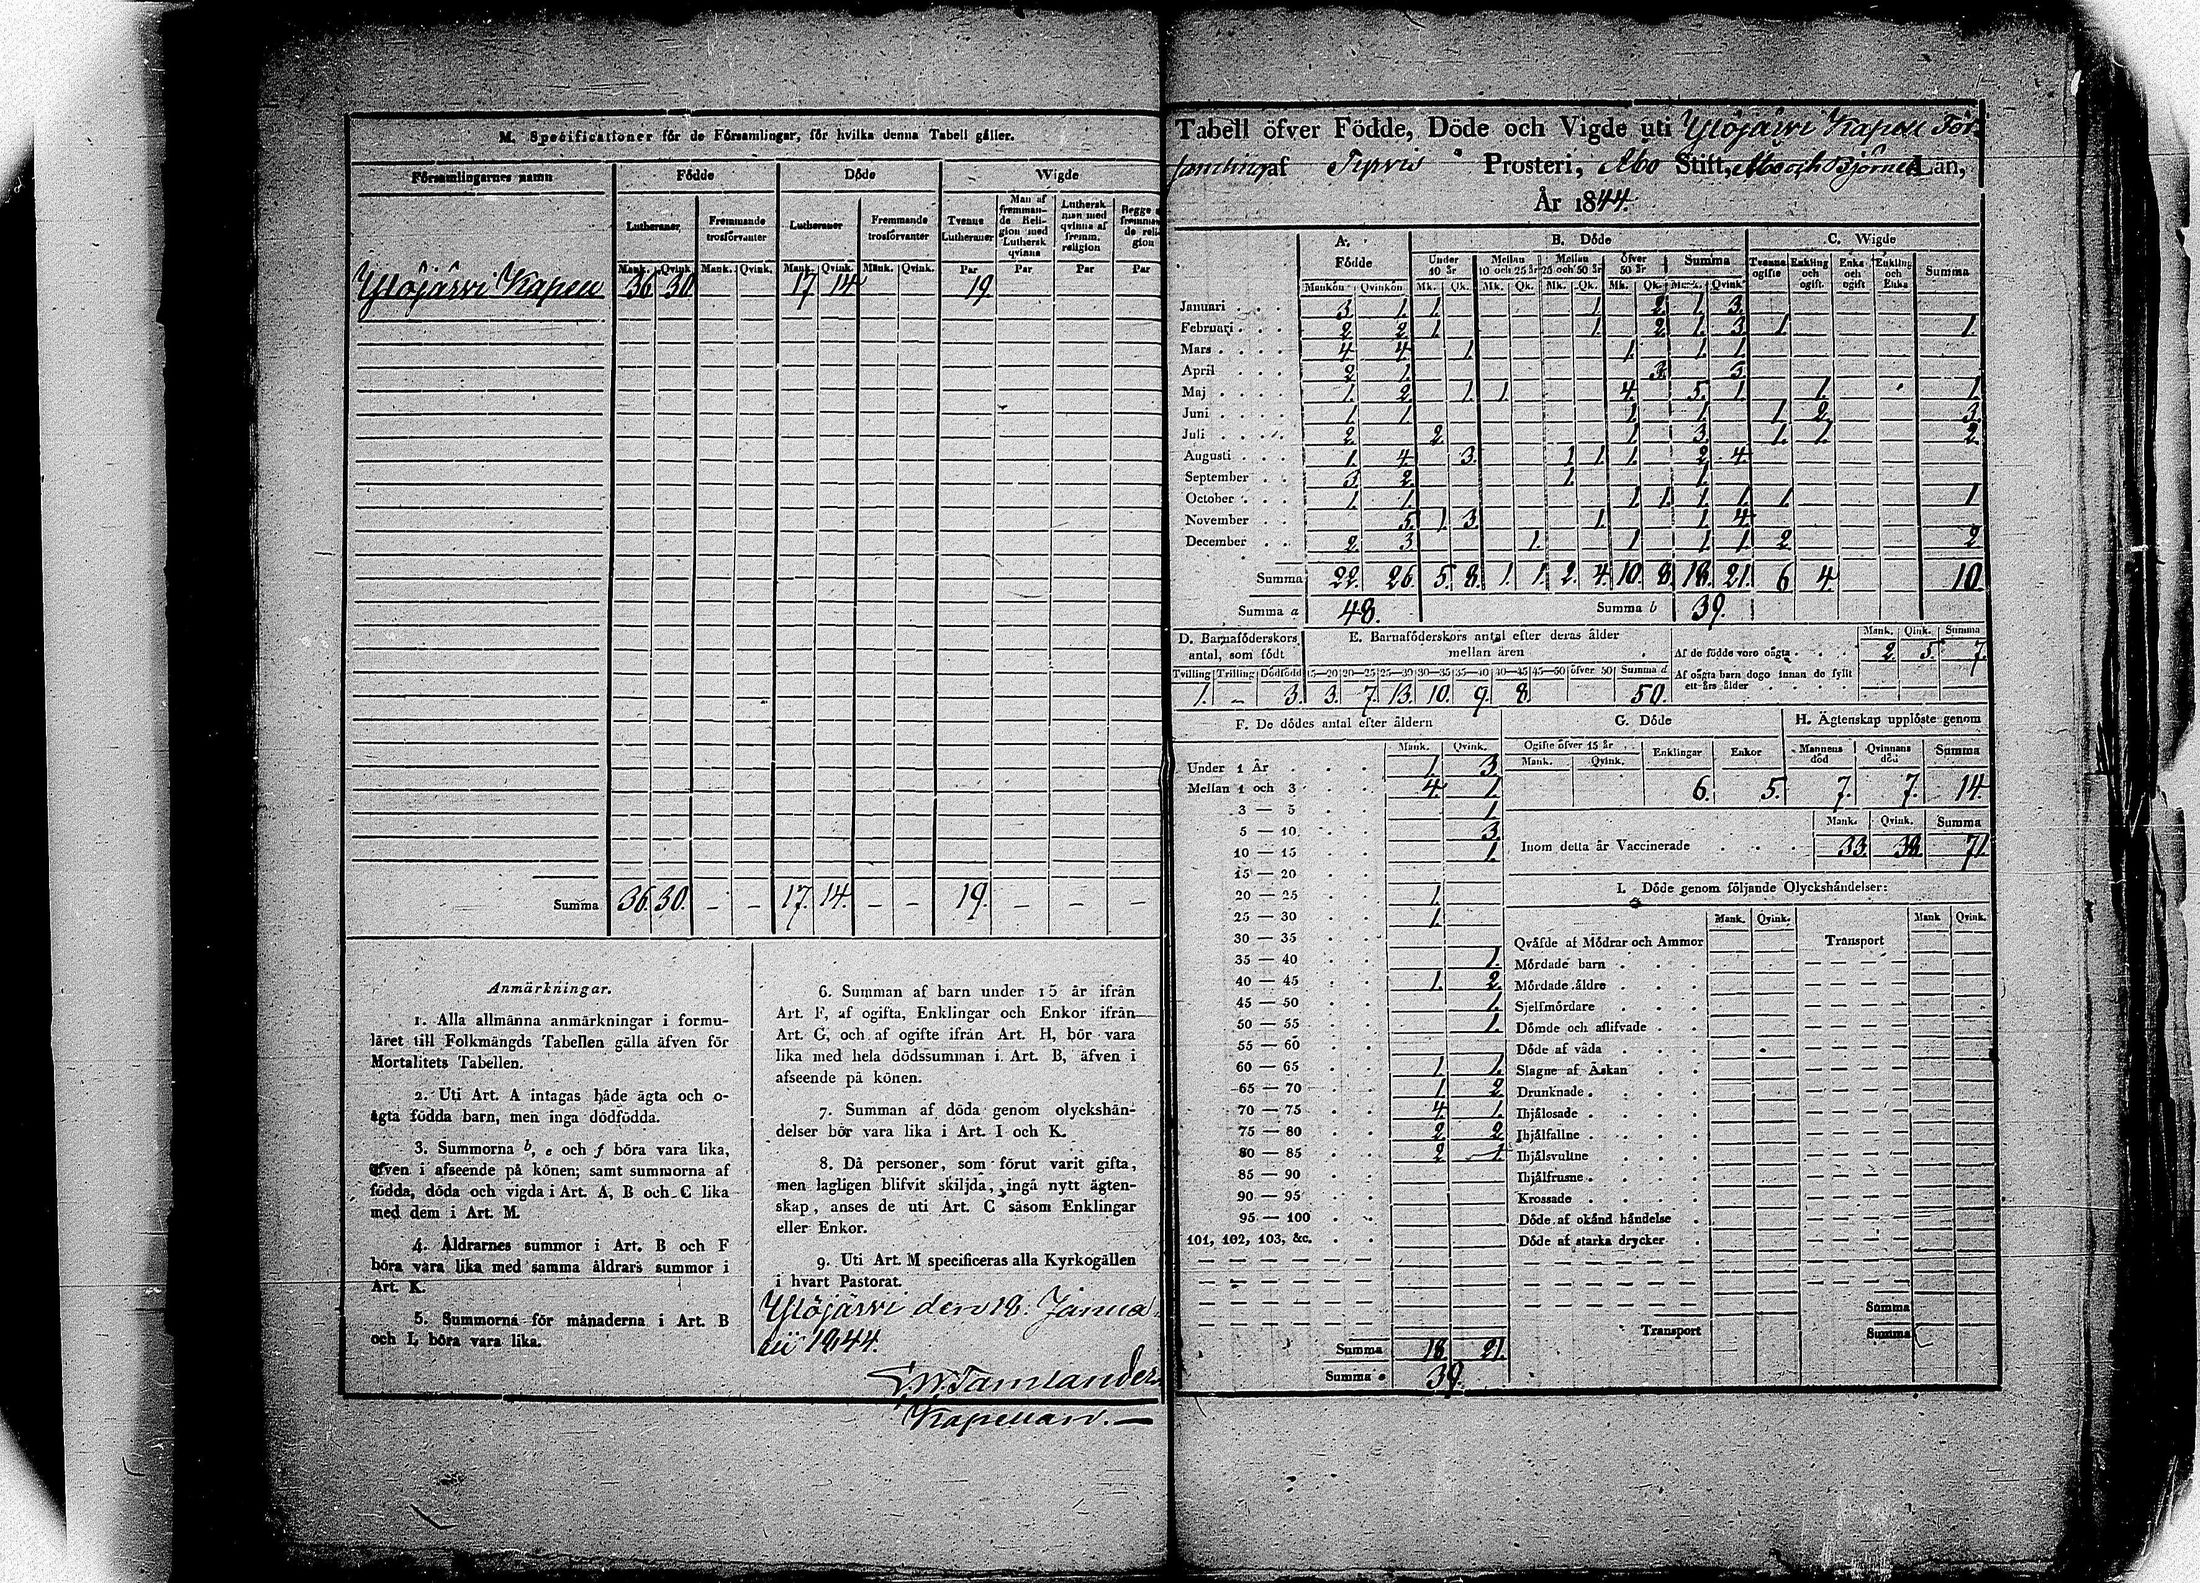 M. Specificationer för de Församlingar, för hvilka denna Tabell gäller.
Församlingarnes namn Födde Döde Wigde
Lutheraner Fremmande trosförvanter Lutheraner Fremmande trosförvanter Tvenne Lutheraner Man af fremmande Religion med Luthersk qvinna Luthersk man med qvinna af fremm. religion Begge fremman de reli gion
Mank. Qvink. Mank. Qvink. Mank. Qvink. Mank. Qvink. Par Par Par Par
Ylöjärvi Kapell 36 30 17 14 19.
Summa 36. 30. – – 17. 14. – – 19. – – –
Anmärkningar.
1. Alla allmänna anmärkningar i formu-
läret till Folkmängds Tabellen gälla äfven för
Mortalitets Tabellen.
2. Uti Art. A intagas både ägta och o-
ägta födda barn, men inga dödfödda.
3. Summorna b, e och f böra vara lika,
äfven i afseende på könen; samt summorna af
födda, döda och vigda i Art. A, B och C lika
med dem i Art. M.
4. Åldrarnes summor i Art. B och F
böra vara lika med samma åldrars summor i
Art. K.
5. Summorna för månaderna i Art. B
och L böra vara lika.
6. Summan af barn under 15 år ifrån
Art. F, af ogifta, Enklingar och Enkor ifrån
Art. G, och af ogifte ifrån Art. H, bör vara
lika med hela dödssumman i Art. B, äfven i
afseende på könen.
7. Summan af döda genom olyckshän-
delser bör vara lika i Art. I och K.
8. Då personer, som förut varit gifta,
men lagligen blifvit skiljda, ingå nytt ägten-
skap, anses de uti Art. C såsom Enklingar
eller Enkor.
9. Uti Art. M specificeras alla Kyrkogällen
i hvart Pastorat.
Ylöjärvi den 18. Janua-
rii 1844.
Tamlander
Kapellan. —
Tabell öfver Födde, Döde och Vigde uti Ylöjärvi Kapell För-
samling af Tyrvis Prosteri, Åbo Stift, Åbo och Björneb. Län,
År 1844.
A. Födde B. Döde C. Wigde
Under 10 år Mellan 10 och 25 år Mellan 25 och 50 år Öfver 50 år Summa Tvenne ogifte Enkling och ogift Enka och ogift Enkling och Enka Summa
Mankön Qvinkön Mk. Qk. Mk. Qk. Mk. Qk. Mk. Qk. Mank. Qvink.
Januari 3 1. 1. 1. 2. 1. 3.
Februari 2 2 1. 1. 2. 1. 3. 1. 1.
Mars 4 4 1. 1. 1. 1.
April 2 1. 3. 3.
Maj 1. 2. 1. 1. 4. 5. 1. 1. 1.
Juni 1. 1. 1. 1. 1. 2. 3.
Juli 2. 2. 1. 3. 1. 1. 2.
Augusti 1. 4. 3. 1. 1. 1. 2. 4.
September 3 2. 1. 1.
October 1. 1. 1. 1. 1. 1. 1. 1
November 5. 1. 3. 1. 1. 4.
December 2. 3. 1. 1. 1. 1. 2. 2
Summa 22. 26. 5. 8. 1. 1. 2. 4. 10. 8. 18. 21. 6 4. 10.
Summa a 48. Summa b 39.
D. Barnaföderskors antal, som födt
Tvilling Trilling Dödfödd
1. – 3.
E. Barnaföderskors antal efter deras ålder
mellan åren
15—20 20—25 25—30 30—35 35—40 40—45 45—50 öfver 50 Summa d
3. 7. 13. 10. 9. 8. 50.
Mank. Qink. Summa
Af de födde voro oägta 2. 5. 7.
Af oägta barn dogo innan de fyllt
ett års ålder
F. De dödes antal efter åldern
Mank. Qvink.
Under 1 År 1. 3.
Mellan 1 och 3 4. 1.
3 — 5 1.
5 — 10 3.
10 — 15 1.
15 — 20
20 — 25 1.
25 — 30 1.
30 — 35
35 — 40 1.
40 — 45 1. 2.
45 — 50 1.
50 — 55 1.
55 — 60
60 — 65 1. 1.
65 — 70 1. 2.
70 — 75 4. 1.
75 — 80 2. 2.
80 — 85 2. 1.
85 — 90
90 — 95
95 — 100
101, 102, 103, &c.
Summa 18. 21.
Summa e 39.
G. Döde
Ogifte öfver 15 år Enklingar Enkor
Mank. Qvink.
6. 5.
H. Ägtenskap upplöste genom
Mannens död Qvinnans död Summa
7. 7. 14
Mank. Qvink. Summa
Inom detta år Vaccinerade 33. 38. 71.
I. Döde genom följande Olyckshändelser:
Mank. Qvink. Mank Qvink.
Qväfde af Mödrar och Ammor Transport
Mördade barn
Mördade äldre
Sjelfmördare
Dömde och aflifvade
Döde af våda
Slagne af Åskan
Drunknade
Ihjälosade
Ihjälfallne
Ihjälsvultne
Ihjälfrusne
Krossade
Döde af okänd händelse
Döde af starka drycker
Summa
Transport Summa